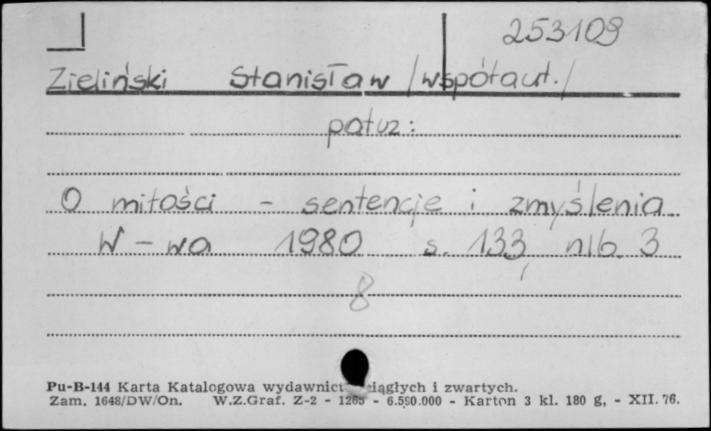 253109
Zieliński Stanisław /współaut./
patrz:
O miłości - sentencje i zmyślenia
W-wa 1980 s. 133, nlb. 3
8
Pu-B-144 Karta Katalogowa wydawnict ciągłych i zwartych.
Zam. 1648/DW/On. W.Z.Graf. Z-2 - 1265 - 6.590.000 - Karton 3 kl. 180 g, - XII. 76.